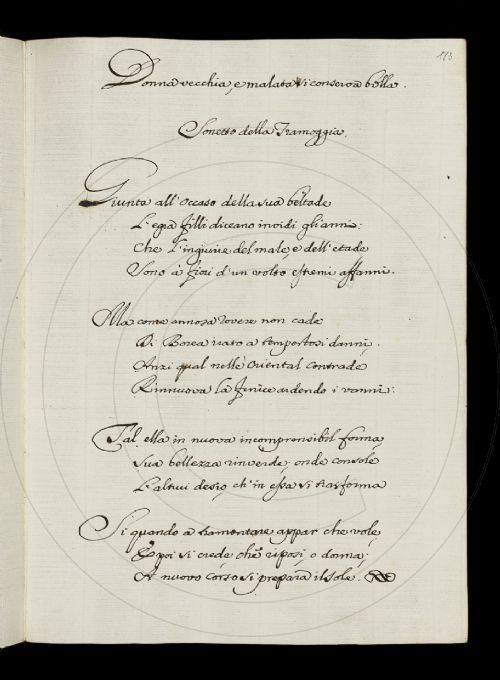 113
Donna vecchia, e malata si conserva bella.
Sonetto della Tramoggia.
Giunta all'Occaso della sua beltade
L'egra Filli diceano invidi gli anni:
Che l'ingiurie del male, e dell'etade
Sono a fiori d'un volto estremi affanni.
Ma come annosa rovere non cade
Di Borea irato a tempestosi danni,
Anzi qual nelle Oriental contrade
Rinnuova la Fenice ardendo i vanni:
Tal ella in nuova incomprensibil forma,
Sua bellezza rinverde; onde console
L'altrui desio, ch'in essa si trasforma
Si quando a tramontare appar che vole,
E poi si crede che riposi, o dorma;
A nuovo corso si prepara il Sole.